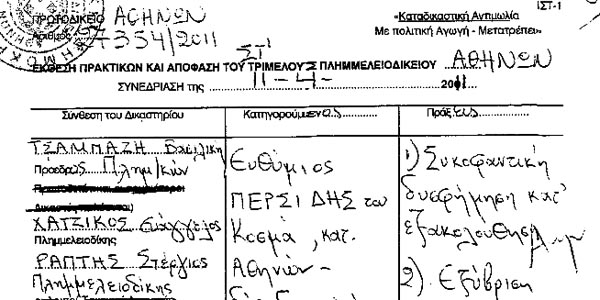 ΙΣΤ-1
ΠΡΩΤΟΔΙΚΕΙΟ ΑΘΗΝΩΝ
«Καταδικαστική Αντιμωλία
Αριθμός 7354/2011
Με πολιτική Αγωγή - Μετατρέπει»
ΣΤ'
ΕΚΘΕΣΗ ΠΡΑΚΤΙΚΩΝ ΚΑΙ ΑΠΟΦΑΣΗ ΤΟΥ ΤΡΙΜΕΛΟΥΣ ΠΛΗΜΜΕΛΕΙΟΔΙΚΕΙΟΥ ΑΘΗΝΩΝ
ΣΥΝΕΔΡΙΑΣΗ της 11-4- 2011
Σύνθεση του Δικαστηρίου
ΤΣΑΜΠΑΖΗ Βασιλική
Πρόεδρος Πλημ/κών
ΧΑΤΖΙΚΟΣ Ευάγγελος
Πλημμελειοδίκης
ΡΑΠΤΗΣ Στέργιος
Πλημμελειοδίκης
Κατηγορούμενος
Ευθύμιος
ΠΕΡΣΙΔΗΣ του
Κοσμά, κατ.
Αθηνών-
Πράξεις
1) Συκοφαντική
δυσφήμηση κατ'
εξακολούθηση
2). Εξύβριση